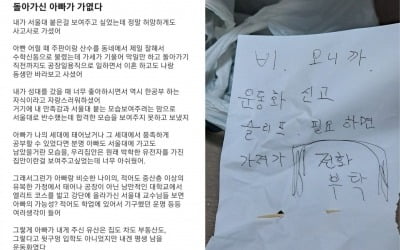 돌아가신 아빠가 가엾다
내가 서울대 붙은걸 보여주고 싶었는데 정말 허망하게도
사고사로 가셨지
아빤 어릴 때 주판이랑 산수를 동네에서 제일 잘해서
수학신동으로 불렸는데 가세가 기울어 막일만 하고 돌아가기
직전까지도 공장일용직으로 일하면서 이혼 하고도 나랑
동생만 바라보고 사셨어
내가 성대를 갔을 때 너무 좋아하시면서 역시 한공부 하는
자식이라고 자랑스러워하셨어
거기에 내 만족감과 서울대 붙는 모습보여주려는 맘으로
서울대로 반수했는데 합격한 모습을 보여주지 못하고 보냈지
아빠가 나의 세대에 태어났거나 그 세대에서 풍족하게
공부할 수 있었다면 분명 아빠도 서울대에 가고도
남았을거란 모습을, 우리집안은 원래 막막한 유전자를 가진
집안이란걸 보여주고싶었는데 너무 아쉬웠어.
그래서그런가 아빠랑 비슷한 나이의, 적어도 중산층 이상의
유복한 가정에서 태어나 공장이 아닌 낭만적인 대학교에서
엘리트 코스를 밟고 강단에 올라가신 서울대 교수님들 보면
아빠의 가능성? 적어도 학업에 있어서 가구했던 운명 등등
여러생각이 들어
그렇게 아빠가 내게 주신 유산은 집도 차도 부동산도,
그렇다고 뒷구멍 입학도 아니었지만 내겐 평생 남을
운동화였다
비. 오니까.
운동화 신고
슬리프. 필요하면
가져가 전화
부탁